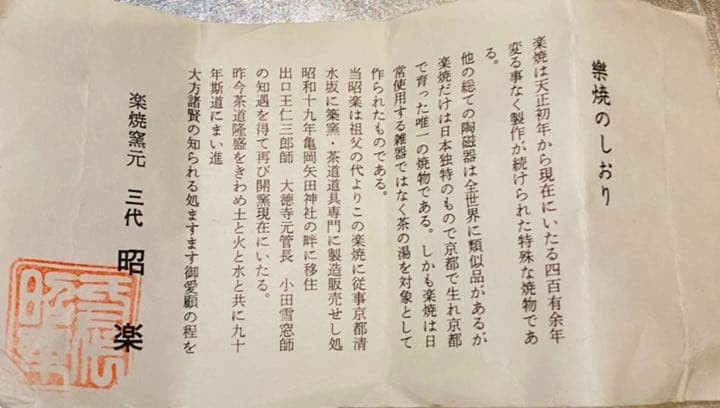 樂焼のしおり
楽焼は天正初年から現在にいたる四百有余年
変る事なく製作が続けられた特殊な焼物であ
る。
他の総ての陶磁器は全世界に類似品があるが
楽焼だけは日本独特のもので京都で生れ京都
で育った唯一の焼物である。しかも楽焼は日
常使用する雑器ではなく茶の湯を対象として
作られたものである。
当昭楽は祖父の代よりこの楽焼に従事京都清
水坂に築窯・茶道道具専門に製造販売せし処
昭和十九年亀岡矢田神社の畔に移住
出口王仁三郎師　大徳寺元管長　小田雪窓師
の知遇を得て再び開窯現在にいたる。
昨今茶道隆盛をきわめ土と火と水と共に九十
年斯道にまい進
大方諸賢の知られる処ますます御愛願の程を
楽焼窯元　三代　昭　楽